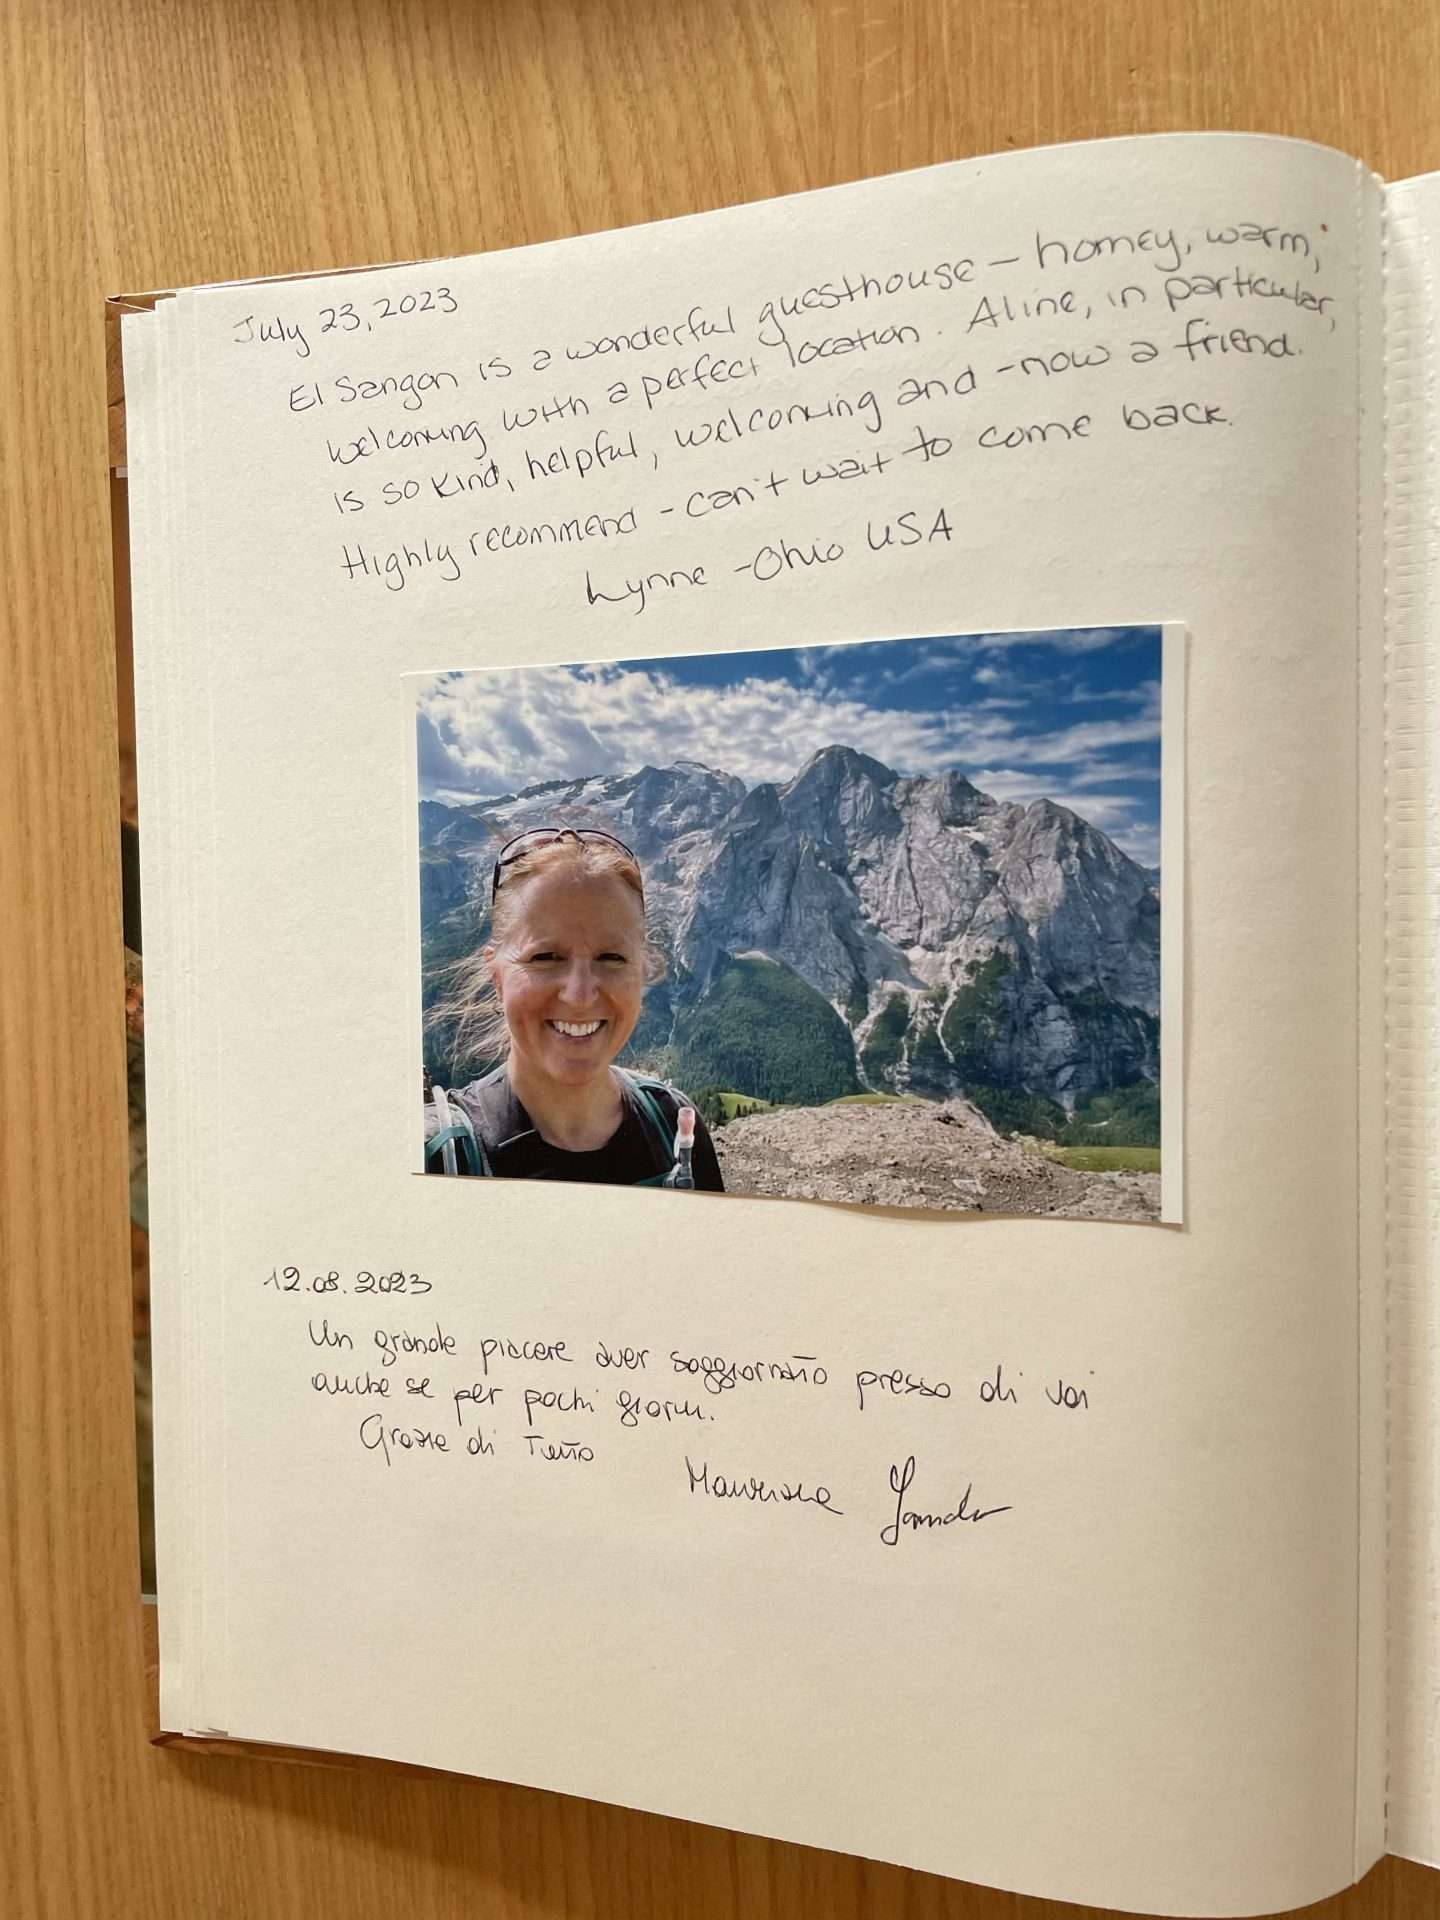 July 23, 2023
El Sangon is a wonderful guesthouse – homey, warm,
welcoming with a perfect location. Aline, in particular,
is so kind, helpful, welcoming and - now a friend.
Highly recommend - can't wait to come back.
Lynne - Ohio USA
12.08.2023
Un grande piacere aver soggiornato presso di voi
anche se per pochi giorni.
Grazie di Tutto